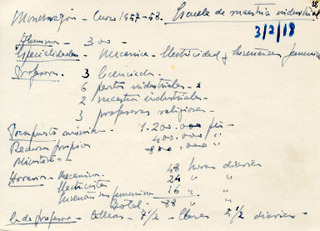 Mondragón - Curso 1957-58. Escuela de maestría industrial
3/2/18
Alumnos - 300
Especialidades - Mecanica - Electricidad y Enseñanza femenina
Profesores - 3 Licenciad.
6 peritos industriales
2 maestros industriales
3 profesores religiosos
Presupuesto 1.200.000 pts
Recursos propios 400.000 "
Ministerio - 800.000 "
Horarios - Mecanica 48 horas diarias
Electricidad 24 " "
Enseñanza femenina 16 " "
Total - 88 " "
Cada profesor - - 7 1/2 - clases 2 1/2 diarias -